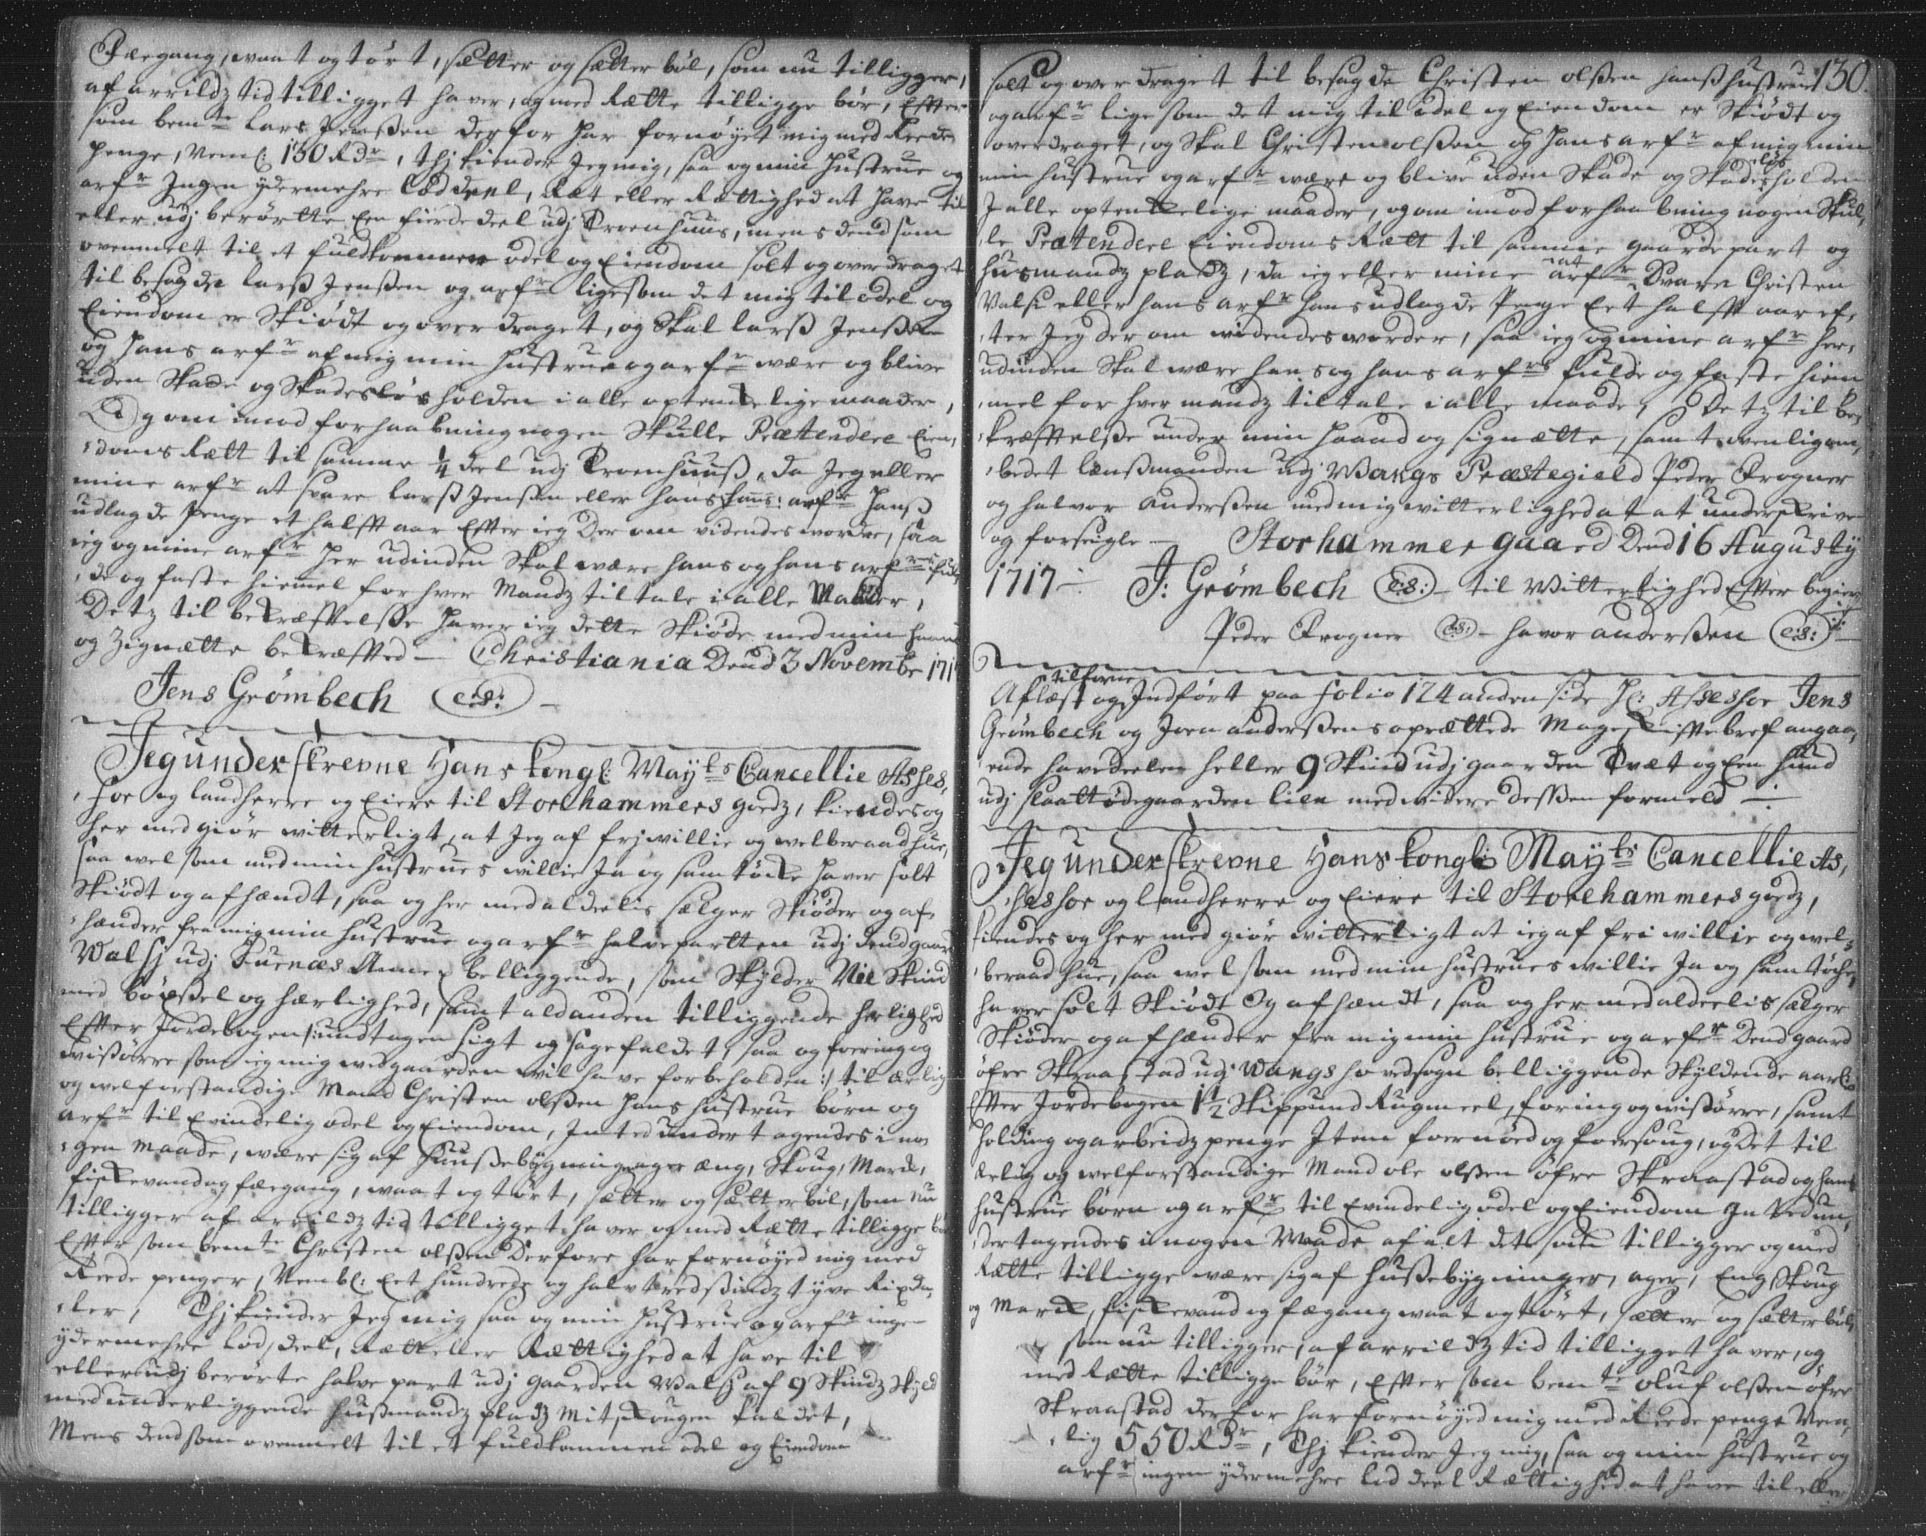 Fæegang, waat og tørt, sætter og sætterböl, som nu tilligger,
af arrildz tid tilligget haver, og med Rætte tilligge bör, Efter
som bemte Lars Jenssen derfor har fornøyet mig med Reede
penge, Neml: 130 Rdr, thj kiender Jeg mig, saa og min Hustrue og
arfr Ingen ydermehre Lod deel, Ræt eller Rættighed at have til
eller udj berørte Een fierde deel udj Kroenhuus, mens dend som
ovenmelt til et fuldkommen odel og Eiendom solt og overdraget
til besagde Larss Jenssen og arfr ligesom det mig til odel og
Eiendom er Skiödt og overdraget, og Skal Larss Jenssen
og Hans arfr af mig min Hustrue og arfr være og blive
uden Skade og Skadesløs holden i alle optenckelige maader,
Og om imod forhaabning nogen Skulle Prætendere Eien,
doms Rætt til samme 1/4 deel udj Kroenhuuss, da Jeg eller
mine arfr at svare Larss Jenssen eller hans arfr Hanss
udlagde Penge et halfft aar Effter ieg Der om videndes worder, saa
ieg og mine arfr her udinden Skal være hans og hans arfrs ful,
de og faste hiemmel for hver Mandz tiltale i alle Maader,
Detz til bekræfftelsse haver ieg dette Skiöde med min haand
og Zignætte bekræffted – Christiania Dend 3 Novembr 171
Jens Grømbech (L:S:) –
Jeg underskrevne Hans kongl: Mayts Cancellie Asses,
sor og landherre og Eiere til Storhammers goedz, kiendes og
her med giör witterligt, at Jeg af frjwillie og welberaad hue,
saa wel som med min hustrues willie Ja og samtöcke haver solt
Skiödt og afhændt, saa og her med aldeelis sælger Skiöder og af,
hænder fra mig min hustrue og arfr halve parten udj dend gaard
Walsj udj Furnæs Annex belliggende, som Skylder Nie Skind
med böxssel og hærlighed, samt ald anden tilliggende herlighed
Efter Jordebogen /: undtagen Sigt og Sagefaldet, saa og foering og
wissörre som ieg mig wed gaarden wil have forbeholden :/ til ærlig
og welforstandige Mand Christen olssen hans hustrue börn og
arfr til Evindelig odel og Eiendom, Inted undertagendes i no,
gen maade, være sig af Huussebygninger ager æng, Skoug, Marck,
fiskevand og fægang, waat og tørt, sætter og sætterböl, som nu
tilligger af arrildz tid tilligget haver og med Rætte tilligge bör
Efter som bemte Christen olssen Derfore har fornøyed mig med
Reede penger, Nembl: Eet hundrede og halvtredssindz tyve Rixda,
ler, Thj kiender Jeg mig saa og min hustrue og arfr ingen
ydermehre Lod, deel, Rætt eller Rættighed at have til
eller udj berørte halve part udj gaarden Walsj af 9 Skindz Skyld
med underliggende hussmandz pladz Mitskougen kaldet,
Mens dend som ovenmelt til et fuldkommen odel og Eiendom
130.
solt og overdraget til besagde Christen olssen hanss hustrue
og arfr lige som det mig til odel og Eiendom er Skiödt og
overdraget, og Skal Christen olssen og hans arfr af mig min
min hustrue og arfr være og blive uden Skade og Skadesløs holden
I alle optenckelige maader, og om imod forhaabning nogen Skul,
le Prætendere Eiendoms Rætt til samme gaardepart og
husmandz pladz, da ieg eller mine arfr at Svare Christen
Valsi eller hans arfr hans udlagde Penge Eet halfft aar ef,
ter Jeg der om widendes worder, saa ieg og mine arfr her,
udinden Skal være hans og hans arfrs fulde og faste hiem,
mel for hver mandz tiltale i alle maade, Detz til be,
kræfftelsse under min haand og signætte, samt wenligen
bedet lænssmanden udj Wangs Præstegield Peder Krogner
og halvor anderssen med mig witterlighed at at underskrive
og forsegle – Storhammer gaard Dend 16 Augusty
1717 – J: Grømbech (L:S:) – til Witterlighed Effter begier
Peder Krogner (L:S:) – havor anderssen (L:S:)
Aflæst tilforne og Indfört paa Folio 124 anden side Hr: Assessor Jens
Grømbech og Joen anderssens oprættede Mageskifftebref angaa,
ende havedeelen heller 9 Skind udj gaarden Kvæt og Een Hud
udj slaatt ödegaarden lien med widere dessen formeld –
Jeg underskrevne Hans kongl: Mayts Cancellie As,
sessor og landherre og Eiere til Storehammers goedz,
kiendes og her med giör witterligt at ieg af fri willie og wel,
beraad hue, saa wel som med min hustrues willie Ja og samtöche,
haver solt Skiödt Og afhændt, saa og her med aldeelis sælger
Skiøder og afhænder fra mig min hustrue og arfr Dend gaard
öfre Skraastad udj Wangs hovedsogn belliggende Skyldende aarl:
Efter Jordebogen 1 1/2 Skippund Rugmeel, foring og wissörre, samt
holding og arbeidz penge Item foernöed og foersoug, og Det til
ærlig og welforstandige Mand ole olssen öfre Skraastad og hans
hustrue börn og arfr til Evindelig odel og Eiendom Inted un,
dertagendes i nogen Maade af alt det som tilligger og med
Rætte tilligge være sig af hussebygninger, ager, Eng Skoug
og Marck, fiskevand og fægang waat og tørt, sætter og sætterböl,
som nu tilligger, af arrildz tid tilligget haver, og
med Rætte tilligge bör, Efter som bemte oluf olssen öfre
Skraastad derfor har fornøyed mig med Reede penge Nem,
lig 550 Rdr, Thj kiender Jeg mig, saa og min hustrue og
arfr ingen ydermehre lod deel Rættighed at have til eller